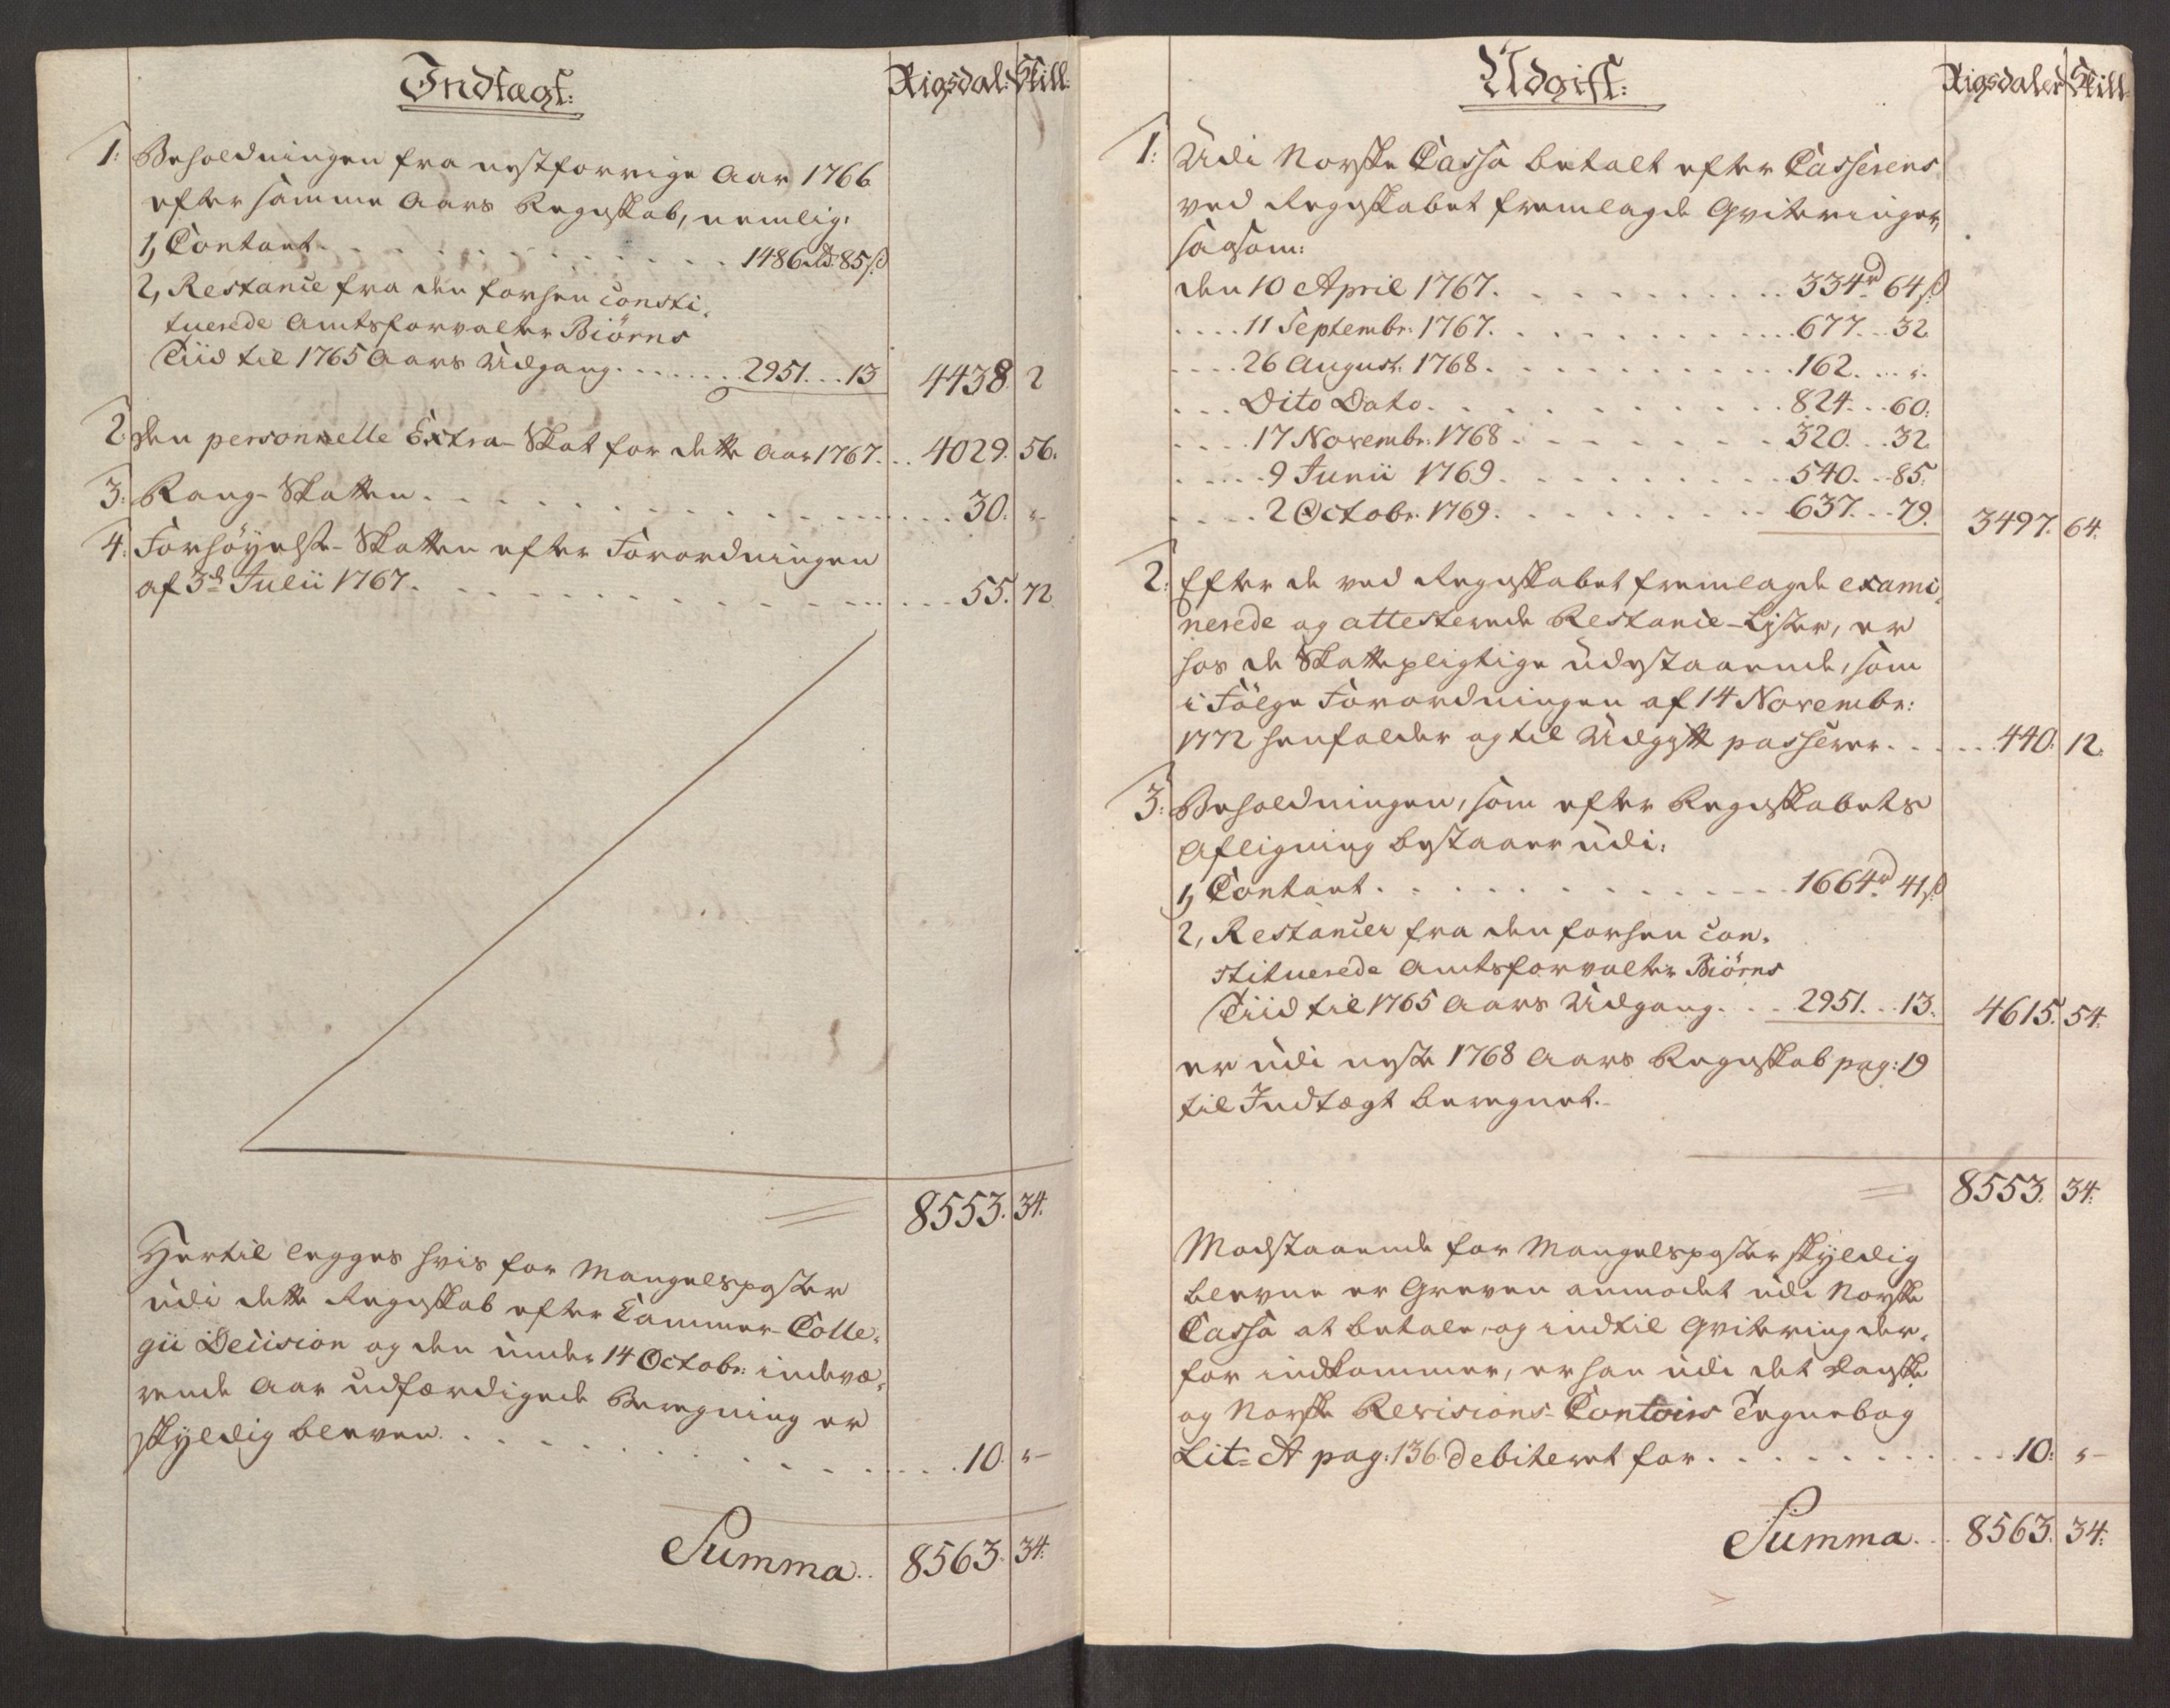 Indtægt:
Rigsdal: Skill:
1: Beholdningen fra nestforrige Aar 1766
efter samme Aars Regnskab, nemlig:
1, Contant . . . 1486 rd 85 ß
2, Restance fra den forhen consti-
tuerede Amtsforvalter Biörns
Tiid til 1765 Aars Udgang . . . 2951. . . 13 4438. 2
2. Den personnelle Extra-Skat for dette Aar 1767. . . 4029. 56.
3: Rang-Skatten . . . 30. "
4: Forhöyelse-Skatten efter Forordningen
af 3d Julii 1767. . . . 55. 72
8553. 34.
Hertil legges hvis for Mangelsposter
udi dette Regnskab efter Cammer-Colle-
gii Decision og den under 14 Octobr: indevæ-
rende Aar udfærdigede Beregning er
skyldig bleven . . . 10. "
Summa . . 8563. 34.
Udgift:
Rigsdaler Skill:
1: Udi Norske Cassa betalt efter Casserens
ved Regnskabet fremlagde Qviteringer,
saasom:
den 10 April 1767. . . . 334 rd 64 ß
. . . . 11 Septembr: 1767. . . . 677. . . 32
. . . . 26 August. 1768. . . . 162. . . "
. . . Dito Dato. . . . 824. . . 60.
. . . . 17 Novembr: 1768 . . . 320. . . 32
. . . . 9 Junii 1769. . . . 540. . . 85.
. . . . 2 Octobr. 1769. . . . 637. . . 79. 3497. 64.
2: Efter de ved Regnskabet fremlagde exami-
nerede og attesterede Restance-Lister, er
hos de Skattepligtige udestaaende, som
i Fölge Forordningen af 14 Novembr:
1772 henfalder og til Udgift passerer. . . . 440. 12.
3: Beholdningen, som efter Regnskabets
Afligning bestaaer udi:
1, Contant . . . 1664 rd 41 ß
2, Restancer fra den forhen con-
stituerede Amtsforvalter Biörns
Tiid til 1765 Aars Udgang. . . 2951. . . 13. 4615. 54.
er udi neste 1768 Aars Regnskab pag: 19
til Indtægt beregnet.
8553. 34.
Modstaaende for Mangelsposter skyldig
blevne er Greven anmodet udi Norske
Cassa at betale, og indtil Qvitering der-
for indkommer, er han udi det danske
og Norske Revisions-Contoirs Tegnebog
Lit= A pag: 136 debiteret for . . . 10: "
Summa. . . 8563. 34.